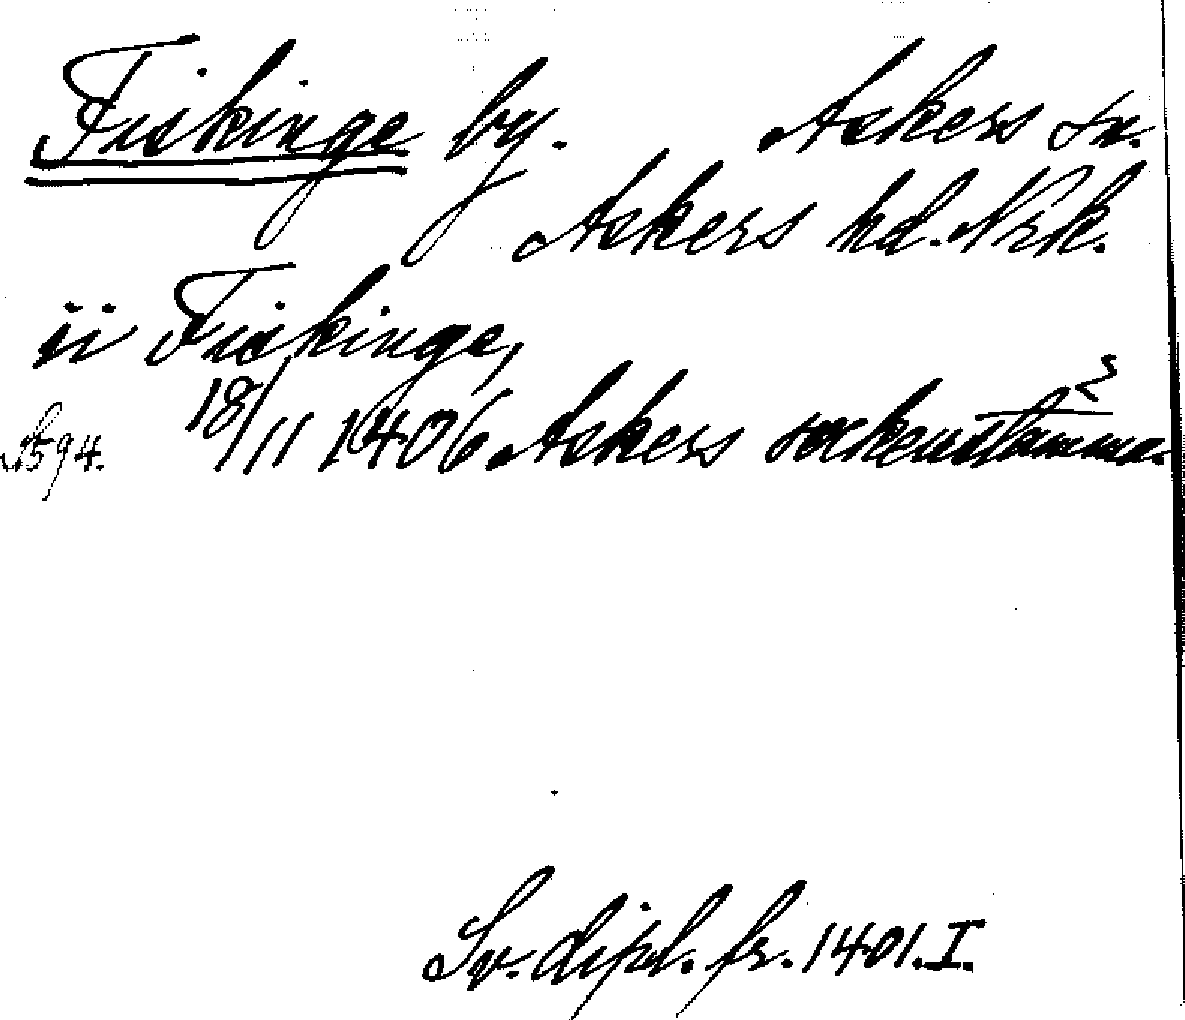 Fiskinge by. Askers sn.
Askers hd. Nrk.
ii Fiskinge,
S. 594. 18/11 1406. Askers sockenstämma.
Sv. dipl. fr. 1401. I.